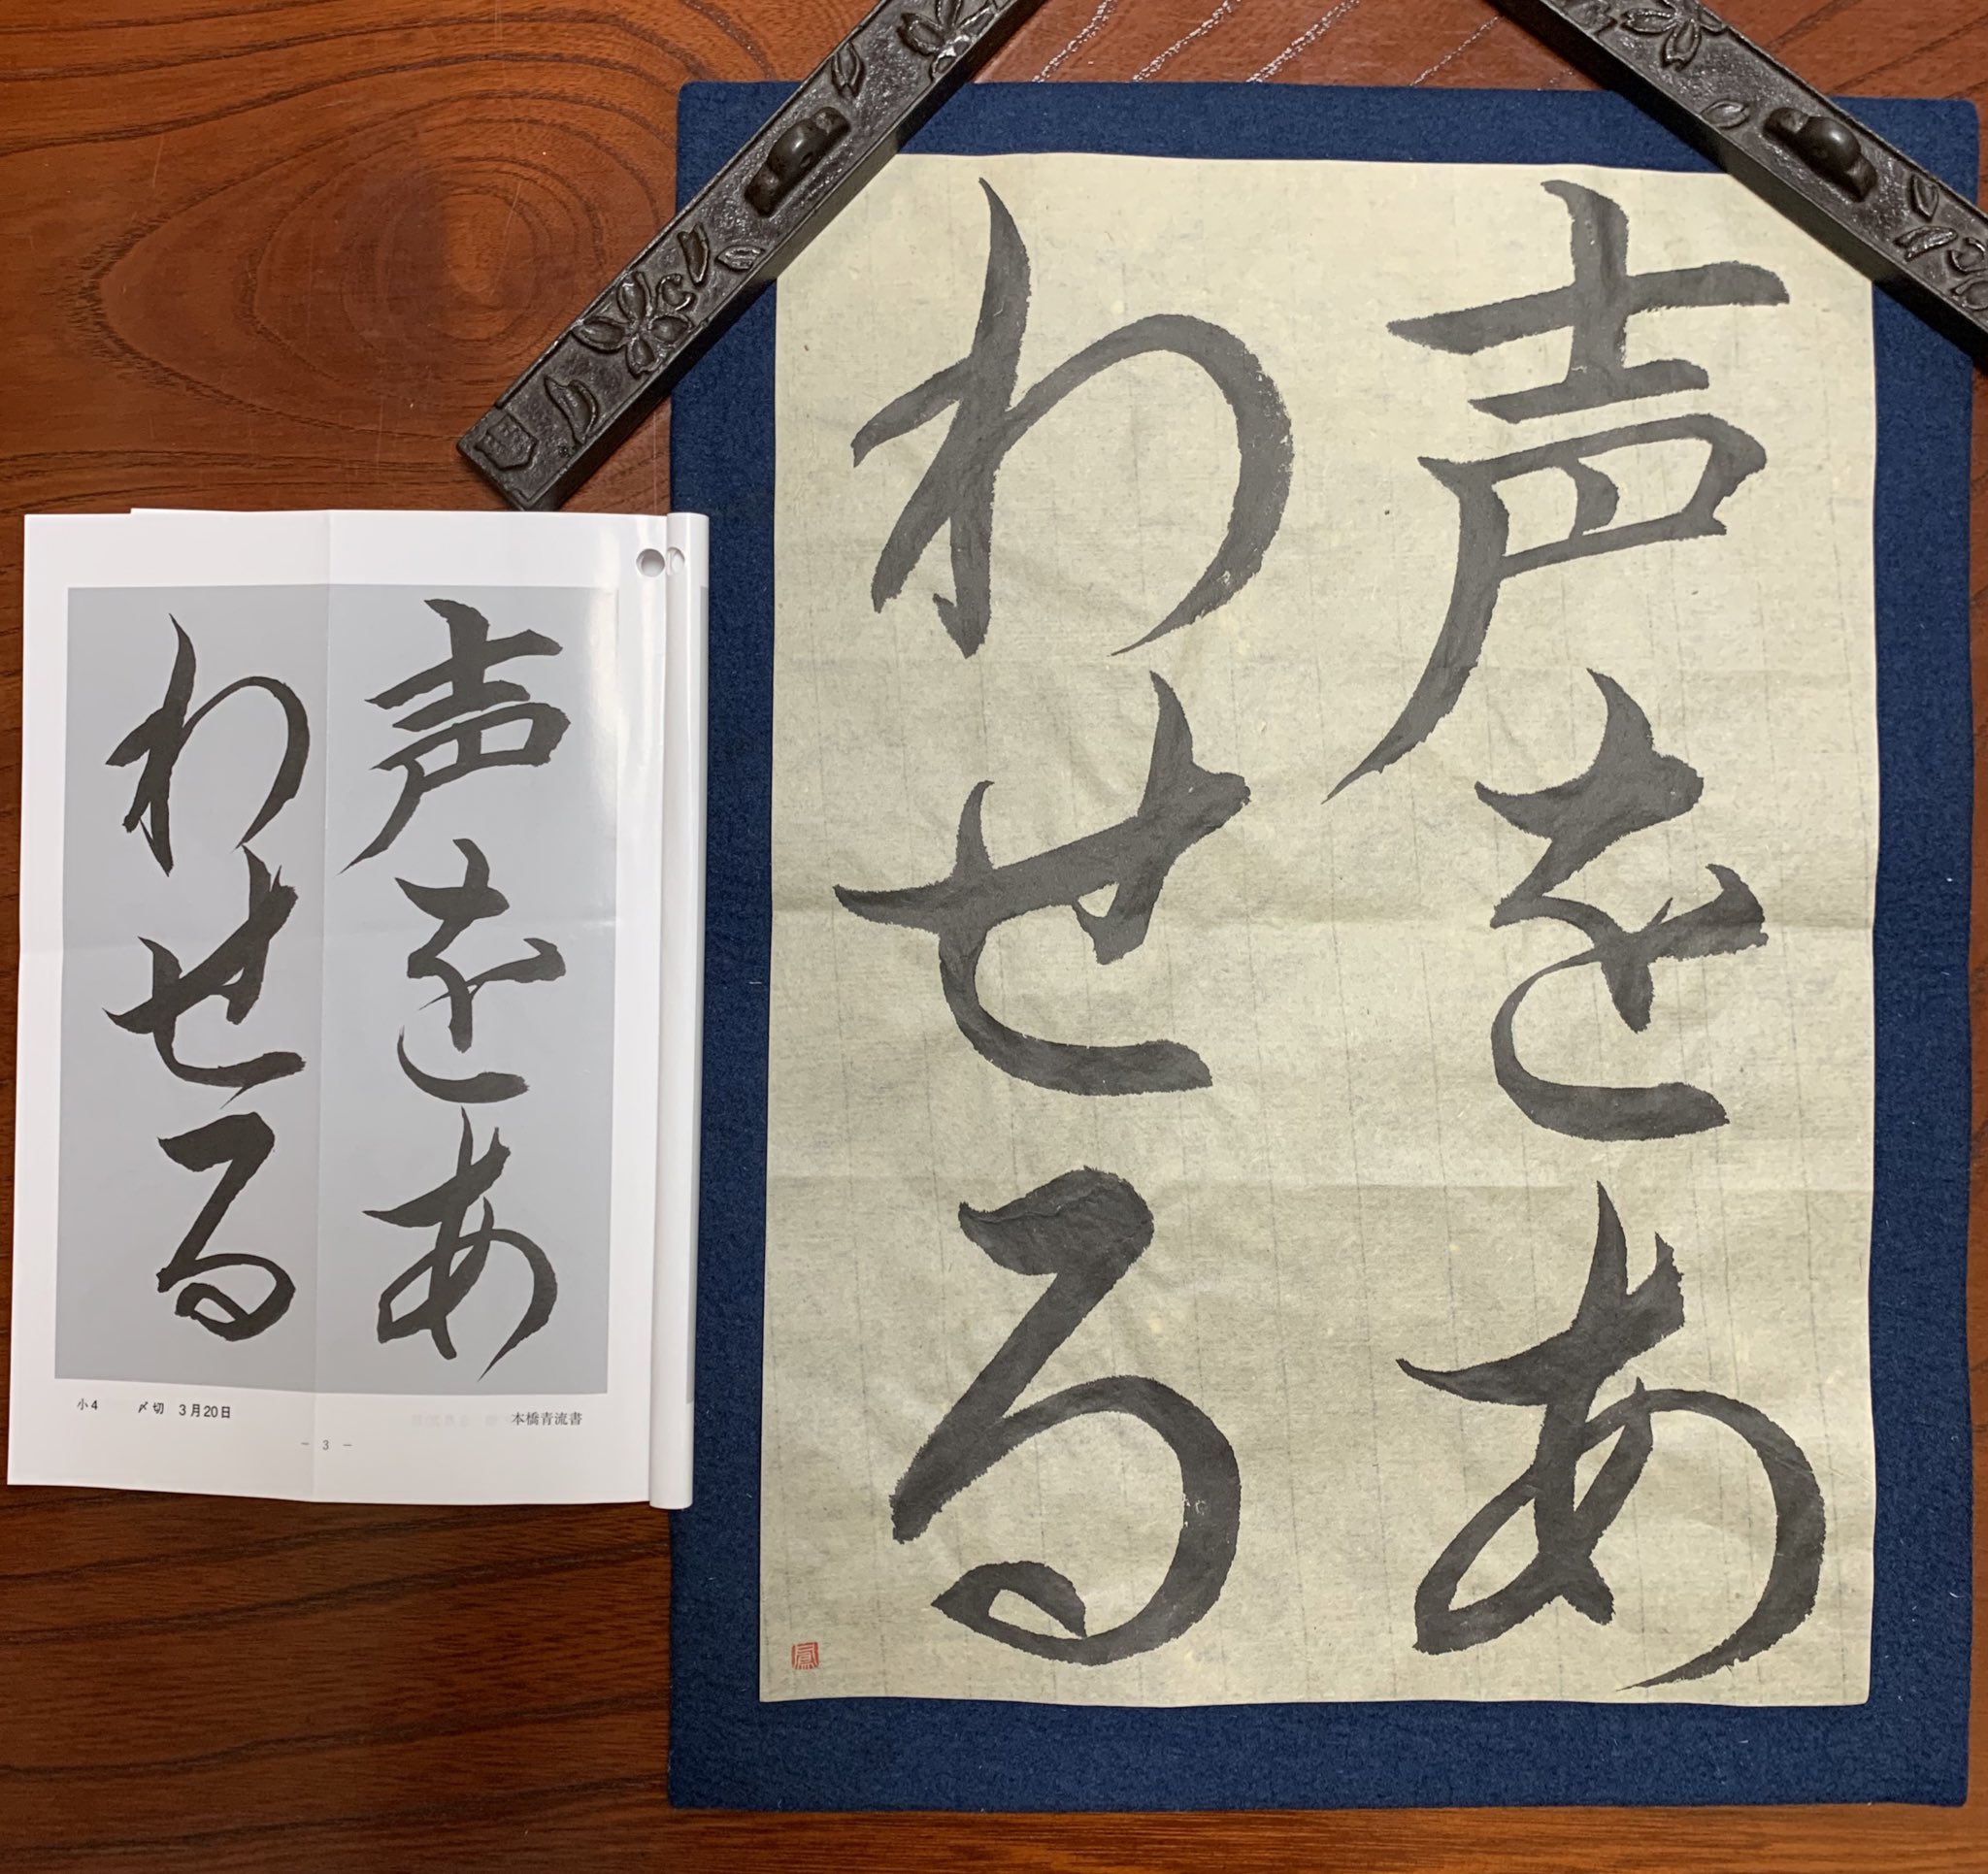 声をあ
わせる
本橋青流書
小4 〆切 3月20日
― 3 ―
声をあ
わせる